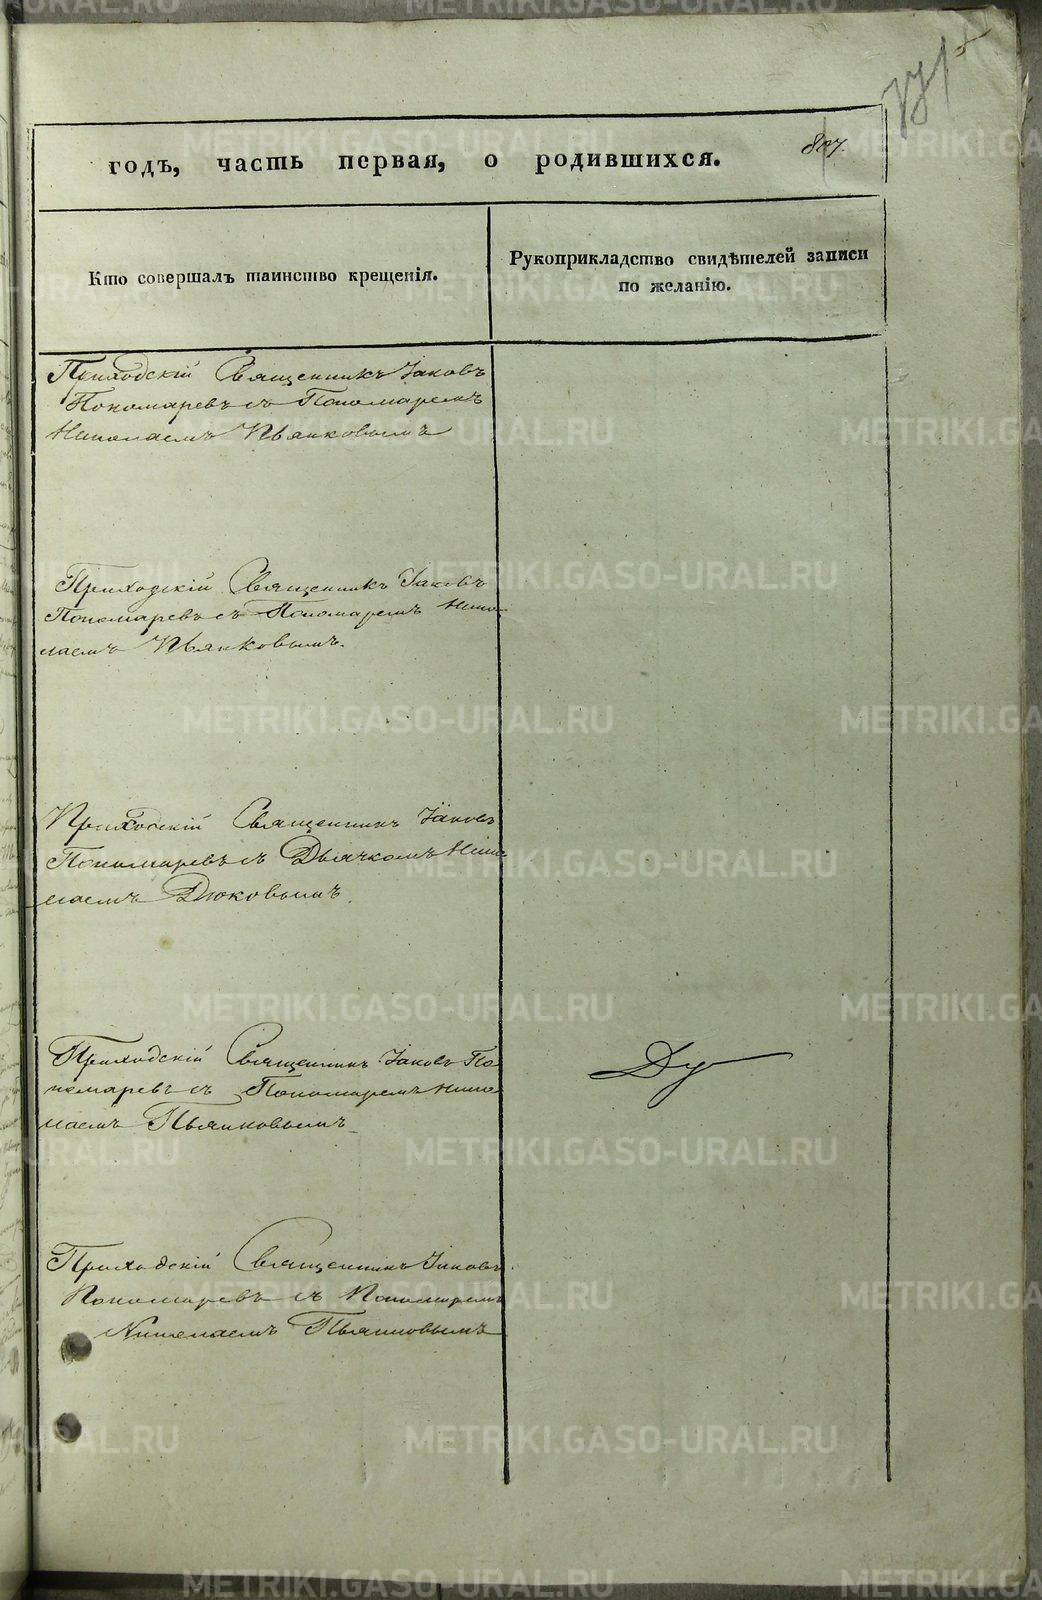 807.
годъ, часть первая, о родившихся.
Кто совершалъ таинство крещенія.
Рукоприкладство свидѣтелей записи
по желанію.
Приходскій Священникъ Іаковъ
Пономаревъ съ Пономаремъ
Николаемъ Пьянковымъ
Приходскій Священникъ Іаковъ
Пономаревъ съ Пономаремъ Нико
лаемъ Пьянковымъ.
Приходскій Священникъ Іаковъ
Пономаревъ съ Дьячкомъ Нико
лаемъ Дюковымъ.
Приходскій Священникъ Іаковъ По
номаревъ съ Пономаремъ Нико
лаемъ Пьянковымъ
Приходскій Священникъ Іаковъ
Пономаревъ съ Пономаремъ
Николаемъ Пьянковымъ
METRIKI.GASO-URAL.RU